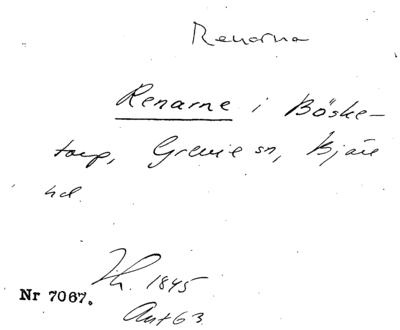 Renarna
Renarne i Böske-
torp, Grevie sn, Bjäre
hd.
Th. 1845
Nr 7067.
Ant 63